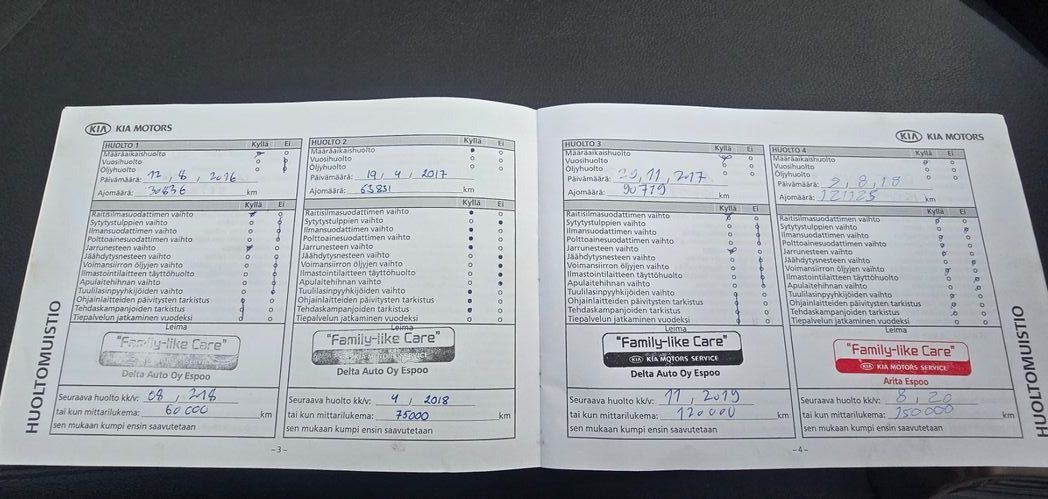 KIA KIA MOTORS
HUOLTO 1 Kyllä Ei
Määräaikaishuolto
Vuosihuolto
Öljyhuolto
Päivämäärä: 12, 8, 2016
Ajomäärä: 30836 km
Kyllä Ei
Raitisilmasuodattimen vaihto
Sytytystulppien vaihto
Ilmansuodattimen vaihto
Polttoainesuodattimen vaihto
Jarrunesteen vaihto
Jäähdytysnesteen vaihto
Voimansiirron öljyjen vaihto
Ilmastointilaitteen täyttöhuolto
Apulaitehihnan vaihto
Tuulilasinpyyhkijöiden vaihto
Ohjainlaitteiden päivitysten tarkistus
Tehdaskampanjoiden tarkistus
Tiepalvelun jatkaminen vuodeksi
Leima
"Family-like Care"
Delta Auto Oy Espoo
Seuraava huolto kk/v: 08, 2018
tai kun mittarilukema: 60000 km
sen mukaan kumpi ensin saavutetaan
HUOLTO 2 Kyllä Ei
Määräaikaishuolto
Vuosihuolto
Öljyhuolto
Päivämäärä: 19, 4, 2017
Ajomäärä: 63831 km
Kyllä Ei
Raitisilmasuodattimen vaihto
Sytytystulppien vaihto
Ilmansuodattimen vaihto
Polttoainesuodattimen vaihto
Jarrunesteen vaihto
Jäähdytysnesteen vaihto
Voimansiirron öljyjen vaihto
Ilmastointilaitteen täyttöhuolto
Apulaitehihnan vaihto
Tuulilasinpyyhkijöiden vaihto
Ohjainlaitteiden päivitysten tarkistus
Tehdaskampanjoiden tarkistus
Tiepalvelun jatkaminen vuodeksi
Leima
"Family-like Care"
KIA MOTORS SERVICE
Delta Auto Oy Espoo
Seuraava huolto kk/v: 4, 2018
tai kun mittarilukema: 75000 km
sen mukaan kumpi ensin saavutetaan
HUOLTOMUISTIO
-3-
KIA KIA MOTORS
HUOLTO 3 Kyllä Ei
Määräaikaishuolto
Vuosihuolto
Öljyhuolto
Päivämäärä: 29, 11, 2017
Ajomäärä: 90719 km
Kyllä Ei
Raitisilmasuodattimen vaihto
Sytytystulppien vaihto
Ilmansuodattimen vaihto
Polttoainesuodattimen vaihto
Jarrunesteen vaihto
Jäähdytysnesteen vaihto
Voimansiirron öljyjen vaihto
Ilmastointilaitteen täyttöhuolto
Apulaitehihnan vaihto
Tuulilasinpyyhkijöiden vaihto
Ohjainlaitteiden päivitysten tarkistus
Tehdaskampanjoiden tarkistus
Tiepalvelun jatkaminen vuodeksi
Leima
"Family-like Care"
KIA KIA MOTORS SERVICE
Delta Auto Oy Espoo
Seuraava huolto kk/v: 11, 2019
tai kun mittarilukema: 120000 km
sen mukaan kumpi ensin saavutetaan
HUOLTO 4 Kyllä Ei
Määräaikaishuolto
Vuosihuolto
Öljyhuolto
Päivämäärä: 9, 8, 18
Ajomäärä: 121125 km
Kyllä Ei
Raitisilmasuodattimen vaihto
Sytytystulppien vaihto
Ilmansuodattimen vaihto
Polttoainesuodattimen vaihto
Jarrunesteen vaihto
Jäähdytysnesteen vaihto
Voimansiirron öljyjen vaihto
Ilmastointilaitteen täyttöhuolto
Apulaitehihnan vaihto
Tuulilasinpyyhkijöiden vaihto
Ohjainlaitteiden päivitysten tarkistus
Tehdaskampanjoiden tarkistus
Tiepalvelun jatkaminen vuodeksi
Leima
"Family-like Care"
KIA KIA MOTORS SERVICE
Arita Espoo
Seuraava huolto kk/v: 8, 20
tai kun mittarilukema: 150000 km
sen mukaan kumpi ensin saavutetaan
HUOLTOMUISTIO
-4-